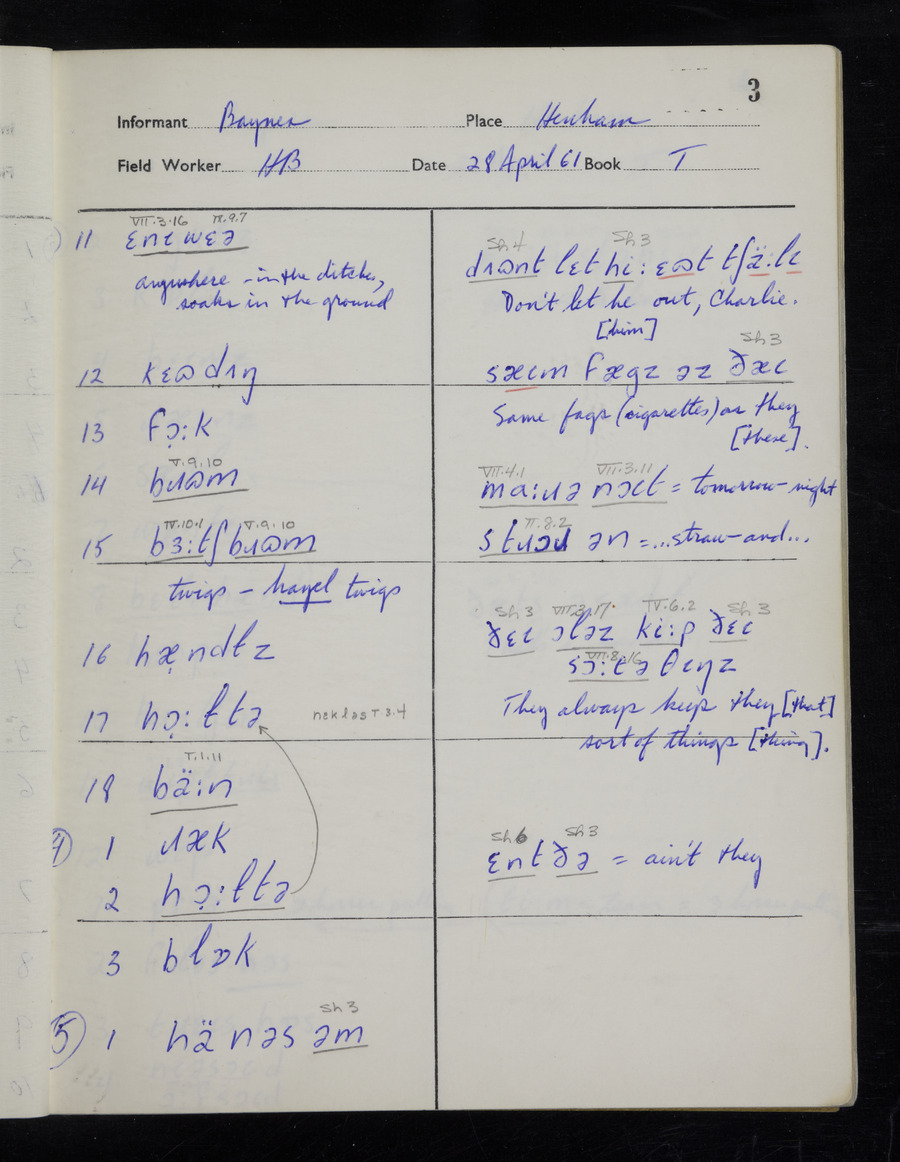 3
Informant Baynes Place Henham
Field Worker HB Date 28 April 61 Book T
VII.3.16
11 ɛnɪwɛə
anywhere - in the ditches,
soaks in the ground
12 kɛɷdɪŋ
13 fɔ̣:k
V.9.10
14 bɹɷm
IV.10.1 V.9.10
15 bɜ:tʃbɹɷm
twigs - hazel twigs
16 hæ̣ndɫz
17 hɔ̣:ɫtə nɛkləs T 3.4
T.1.11
18 bä:n
4) 1 ɹæk
2 hɔ̣:ɫtə
3 blɒk
Sh 3
5) 1 hänəs əm
Sh 4 Sh 3
dɪɷnt lɛt hi: ɛɷt tʃä:lɪ
Don't let he out, Charlie.
[him]
Sh 3
sæɩm fægz əz ðæɩ
Same fags (cigarettes) as they
[these].
VII.4.1 VII.3.11
ma:ɹə nɔɩt = tomorrow-night
II.8.2
stɹɔɹ ən = ...straw-and...
Sh 3 VII.3.17 IV.6.2 Sh 3
ðɛɩ ɔləz ki:p ðɛɩ
VII.8.16
sɔ:tə θɩŋz
They always keep they [that]
sort of things [thing].
Sh 6 Sh 3
ɛnt ðə = ain't they